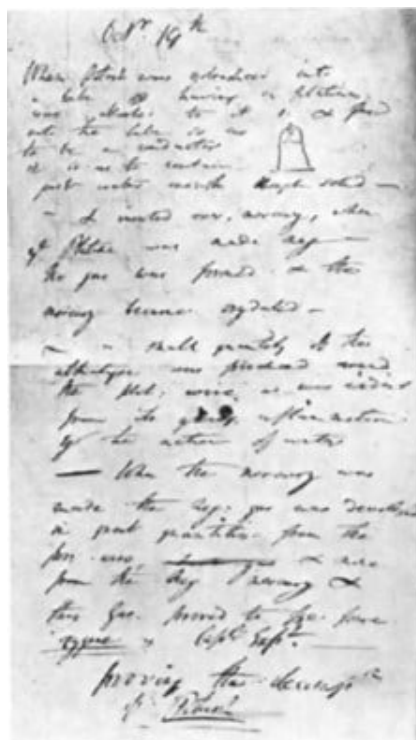 Octr 19th
When Potash was introduced into
a tube having a platina
wire attached to it so & fused
into the tube so as
to be a conductor
i.e. so as to contain
just water enough though solid —
— & inserted over mercury, when
the Platina was made neg —
No gas was formed & the
mercury became oxydated —
— a small quantity of the
alkaligen was produced round
the plat: wire, as was evident
from its quick inflammation
by the action of water
— When the mercury was
made the neg: gas was developed
in great quantities from the
pos: wire, & none
from the neg mercury &
this gas proved to be pure
oxygene Capl. Expt.
proving the decompn
of Potash